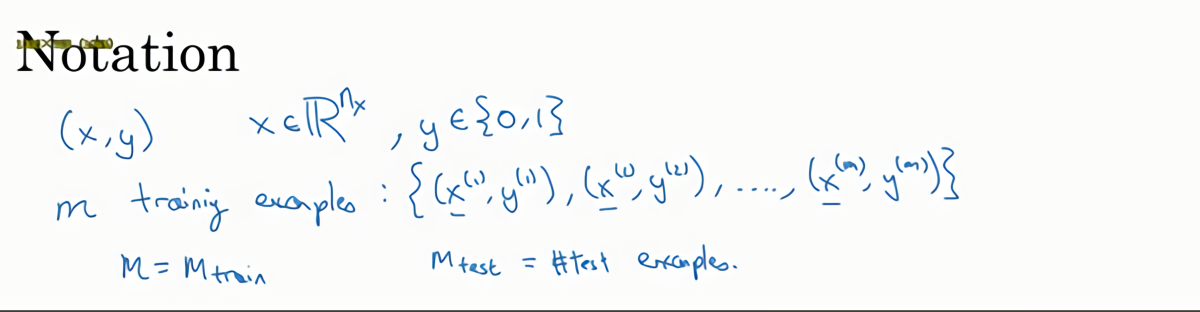 Notation
(x,y) x∈ℝ^{n_x}, y∈{0,1}
m trainig examples : {(x^{(1)}, y^{(1)}), (x^{(1)}, y^{(2)}), ...., (x^{(m)}, y^{(m)})}
M = M_{train} M_{test} = #test examples.